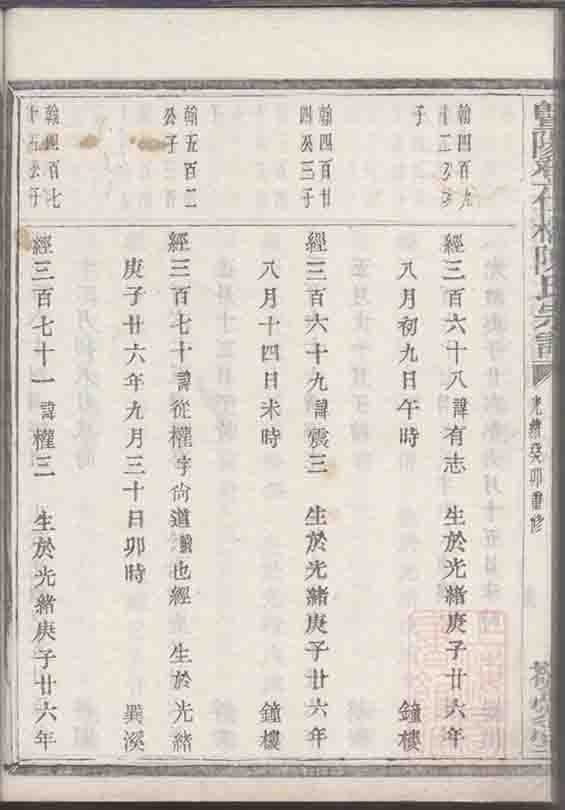 光緒癸卯重修
翰四百九
十二公次
子
經三百六十八諱有志　生於光緒庚子廿六年
八月初九日午時　鐘樓
翰四百廿
四公三子
經三百六十九諱震三　生於光緒庚子廿六年
八月十四日未時　鐘樓
翰五百二
公子
經三百七十諱從權字尙道號也經　生於光緒
庚子廿六年九月三十日卯時　巽溪
翰四百七
十五公子
經三百七十一諱權三　生於光緒庚子廿六年